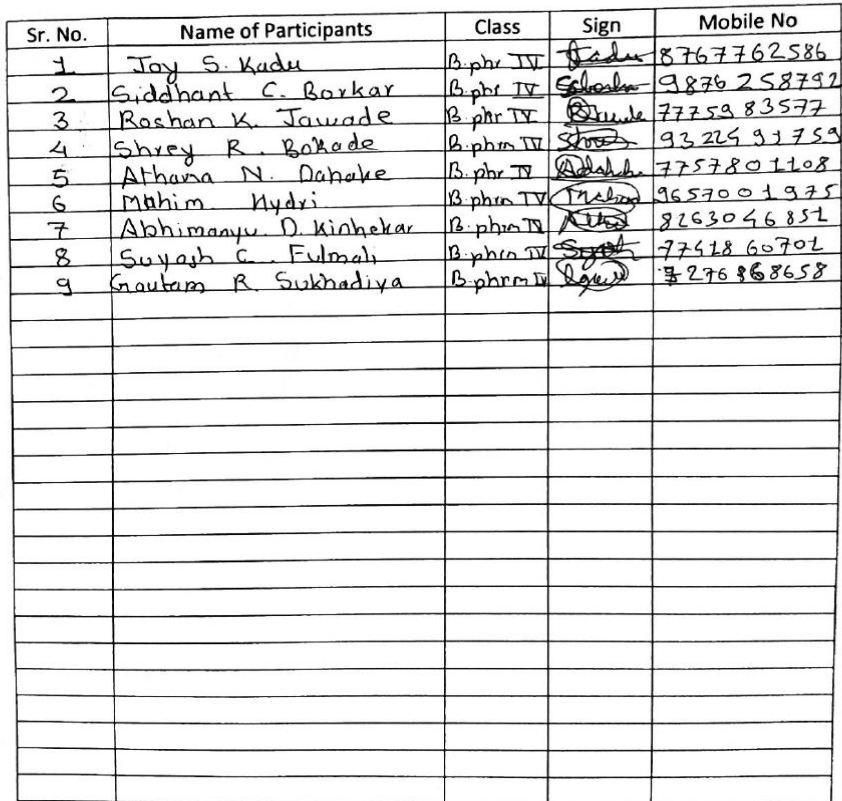 Sr. No. Name of Participants Class Sign Mobile No
1 Joy S. Kadu B.phr IV Kadu 8767762586
2 Siddhant C. Borkar B.phr IV 98762 58792
3 Roshan K. Jawade B.phr IV 77759 83577
4 Shrey R. Bokade B.phrm IV 93224 91759
5 Athana N. Dahake B.phr IV 7757801108
6 Mahim Hydri B.phrm IV 9657001975
7 Abhimanyu D. Kinhekar B.phrm IV 8263046851
8 Suyash C. Fulmali B.phrm IV 77418 60701
9 Gautam R Sukhadiya B.phrm IV 7276868658